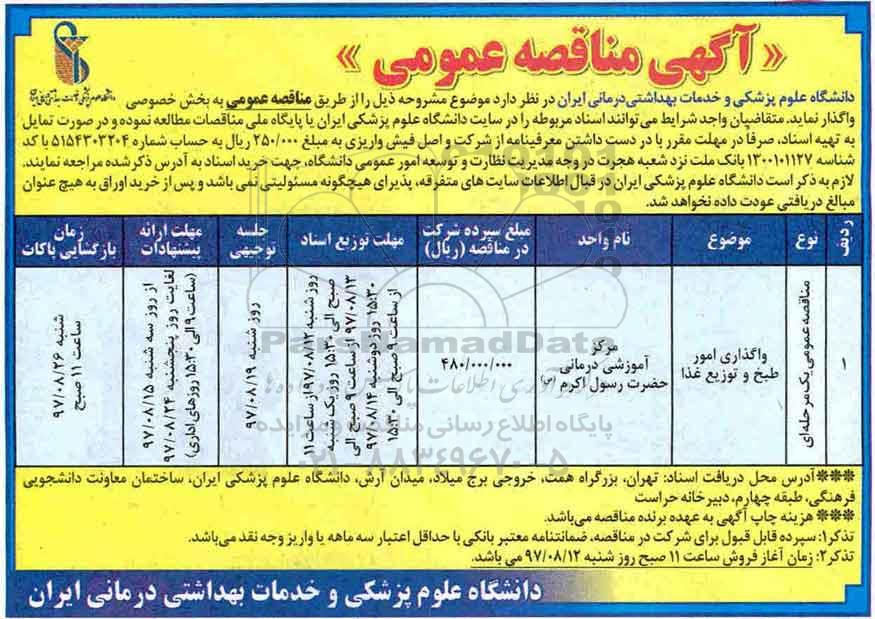 « آگهی مناقصه عمومی »
دانشگاه علوم پزشکی و خدمات بهداشتی‌درمانی ایران در نظر دارد موضوع مشروحه ذیل را از طریق مناقصه عمومی به بخش خصوصی
واگذار نماید. متقاضیان واجد شرایط می‌توانند اسناد مربوطه را در سایت دانشگاه علوم پزشکی ایران یا پایگاه ملی مناقصات مطالعه نموده و در صورت تمایل
به تهیه اسناد، صرفاً در مهلت مقرر با در دست داشتن معرفینامه از شرکت و اصل فیش واریزی به مبلغ ۲۵۰/۰۰۰ ریال به حساب شماره ۵۱۵۴۳۰۳۲۰۴ با کد
شناسه ۱۳۰۰۱۰۱۱۲۷ بانک ملت نزد شعبه هجرت در وجه مدیریت نظارت و توسعه امور عمومی دانشگاه، جهت خرید اسناد به آدرس ذکر شده مراجعه نمایند.
لازم به ذکر است دانشگاه علوم پزشکی ایران در قبال اطلاعات سایت های متفرقه، پذیرای هیچگونه مسئولیتی نمی باشد و پس از خرید اوراق به هیچ عنوان
مبالغ دریافتی عودت داده نخواهد شد.
ردیف
نوع
موضوع
نام واحد
مبلغ سپرده شرکت
در مناقصه (ریال)
مهلت توزیع اسناد
جلسه
توجیهی
مهلت ارائه
پیشنهادات
زمان
بازگشایی پاکات
۱
مناقصه عمومی یک مرحله‌ای
واگذاری امور
طبخ و توزیع غذا
مرکز
آموزشی درمانی
حضرت رسول اکرم (ص)
۴۸۰/۰۰۰/۰۰۰
روز شنبه ۹۷/۰۸/۱۲ از ساعت ۱۱
صبح الی ۱۵:۳۰ روز یک شنبه
۹۷/۰۸/۱۳ از ساعت ۹ صبح الی
۱۵:۳۰ روز دوشنبه ۹۷/۰۸/۱۴
از ساعت ۹ صبح الی ۱۵:۳۰
روز شنبه ۹۷/۰۸/۱۹
از روز سه شنبه ۹۷/۰۸/۱۵
لغایت روز پنجشنبه ۹۷/۰۸/۲۴
(ساعت ۹ الی ۱۵:۳۰ روزهای اداری)
شنبه ۹۷/۰۸/۲۶
ساعت ۱۱ صبح
ParsNamadData
پایگاه اطلاع رسانی مناقصه و مزایده
۰۲۱-۸۸۳۴۹۶۷۰-۵
***آدرس محل دریافت اسناد: تهران، بزرگراه همت، خروجی برج میلاد، میدان آرش، دانشگاه علوم پزشکی ایران، ساختمان معاونت دانشجویی
فرهنگی، طبقه چهارم، دبیرخانه حراست
*** هزینه چاپ آگهی به عهده برنده مناقصه می‌باشد.
تذکر۱: سپرده قابل قبول برای شرکت در مناقصه، ضمانتنامه معتبر بانکی با حداقل اعتبار سه ماهه یا واریز وجه نقد می‌باشد.
تذکر۲: زمان آغاز فروش ساعت ۱۱ صبح روز شنبه ۹۷/۰۸/۱۲ می باشد.
دانشگاه علوم پزشکی و خدمات بهداشتی درمانی ایران